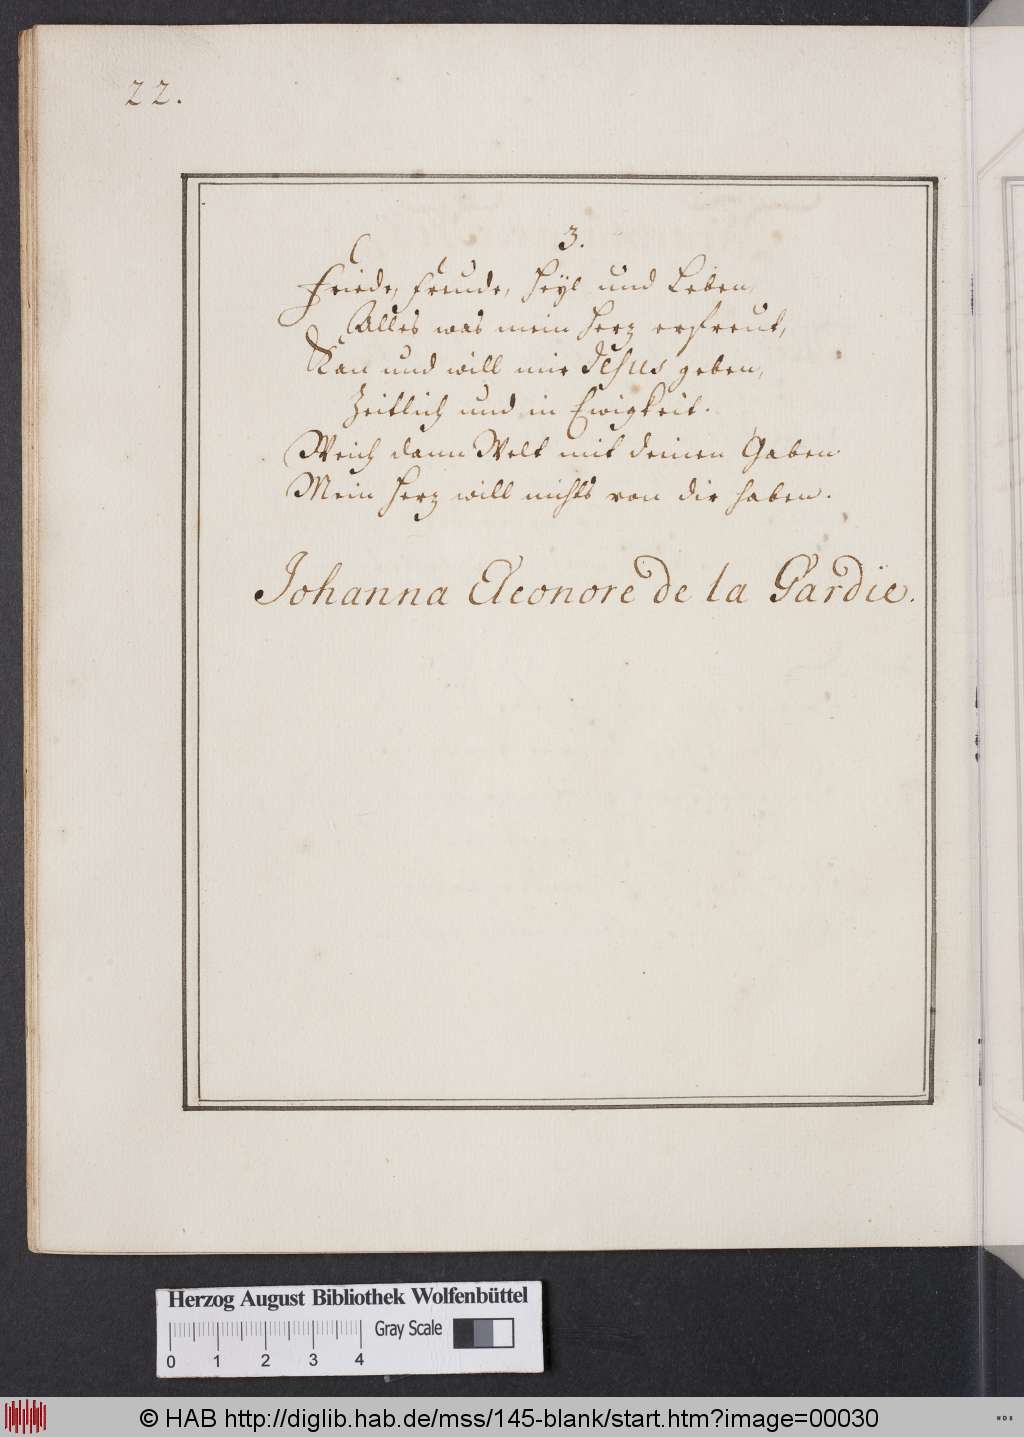 22.
3.
Friede, Freude, Heÿl und Leben,
Alles was mein Herz erfreut,
Kan und will mir Jesus geben,
Zeitlich und in Ewigkeit.
Weich dann Welt mit deinen Gaben
Mein Herz will nichts von dir haben.
Johanna Eleonore de la Gardie.
Herzog August Bibliothek Wolfenbüttel
Gray Scale
0 1 2 3 4
© HAB http://diglib.hab.de/mss/145-blank/start.htm?image=00030